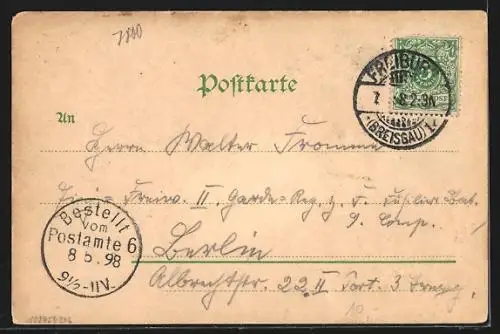 7800
Postkarte
FREIBURG
7 8 2-3N
(BREISGAU) 1.
An
Herrn Walter Fromme
Freiw. II Garde-Reg. z. F.
9. Comp.
Berlin
Albrechtstr. 22 II
Bestellt
vom
Postamte 6
8 5.98
9½-11V.
10